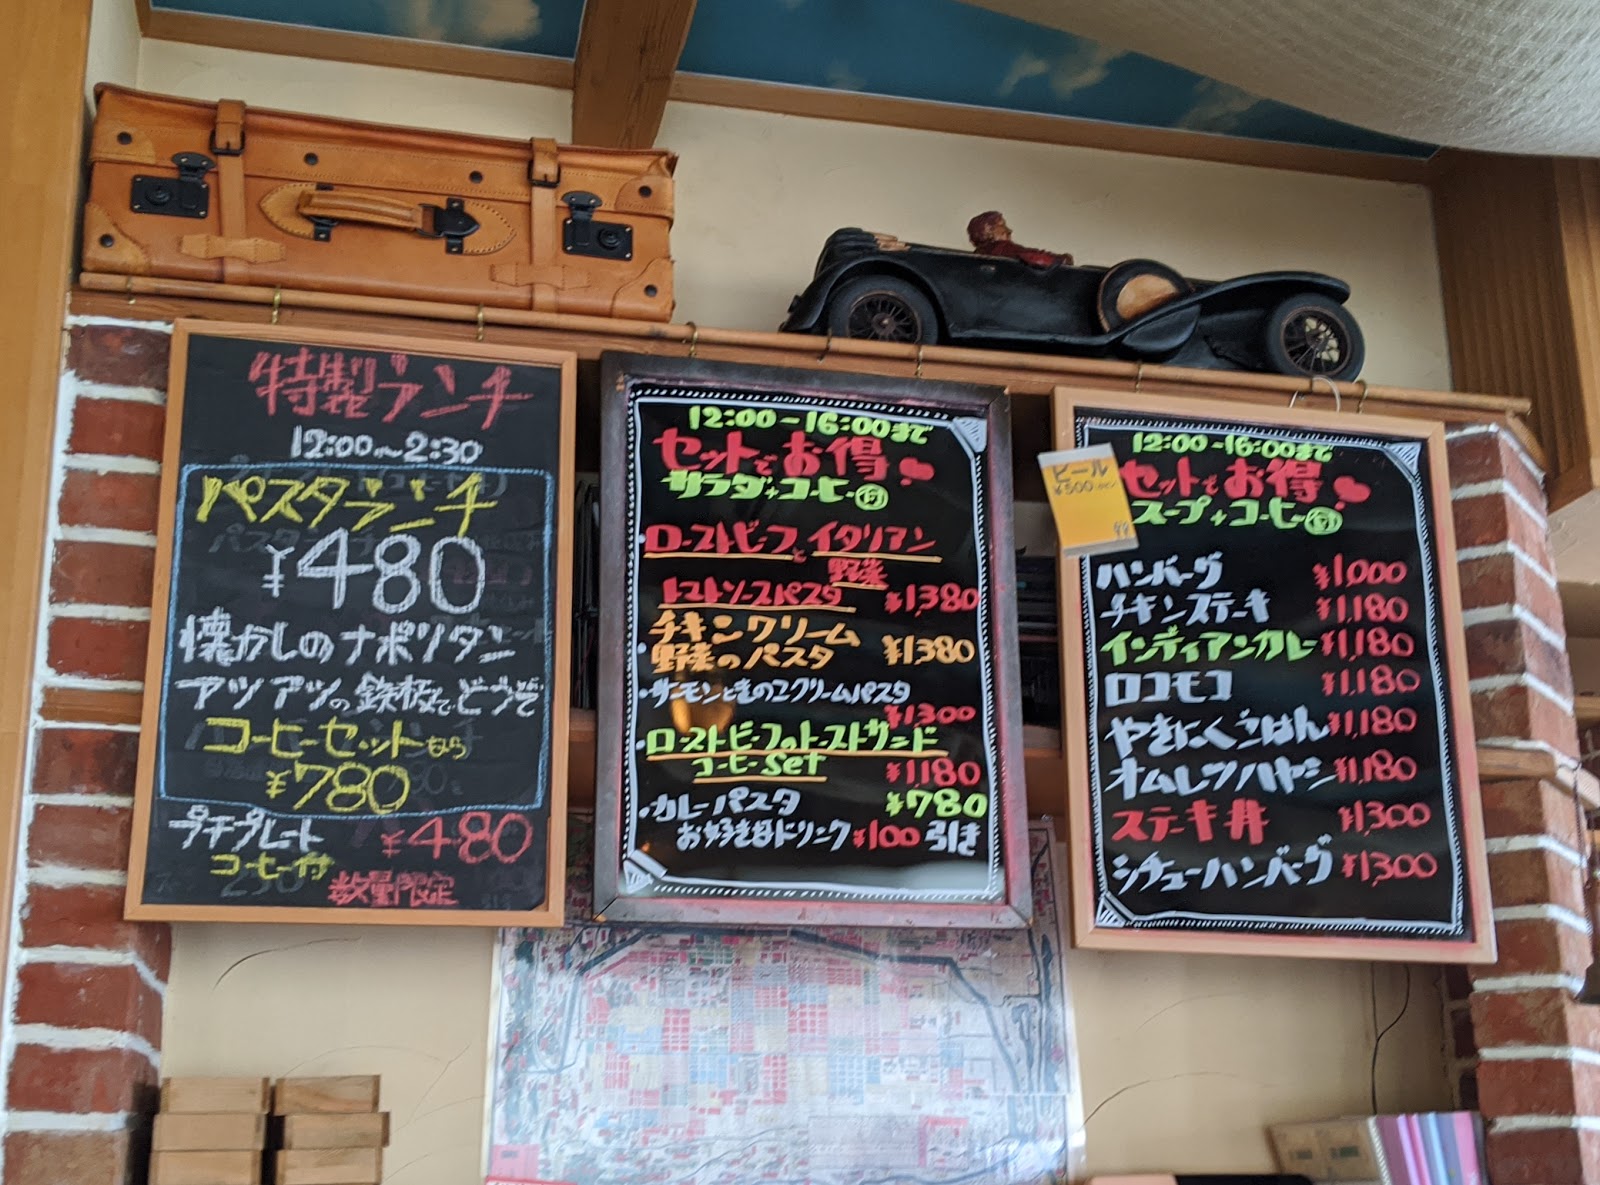 特製ランチ
12:00〜2:30
パスタランチ
¥480
懐かしのナポリタン
アツアツの鉄板でどうぞ
コーヒーセットなら
¥780
プチプレート ¥480
コーヒー付
数量限定
12:00-16:00まで
セットでお得
サラダ+コーヒー付
・ローストビーフとイタリアン
野菜
トマトソースパスタ ¥1,380
チキンクリーム
・野菜のパスタ ¥1,380
・サーモンときのこクリームパスタ
¥1,300
・ローストビーフのトーストサンド
コーヒーset ¥1,180
・カレーパスタ ¥780
お好きなドリンク¥100引き
ビール
¥500
12:00-16:00まで
セットでお得
スープ+コーヒー付
ハンバーグ ¥1,000
チキンステーキ ¥1,180
インディアンカレー ¥1,180
ロコモコ ¥1,180
やきにくごはん ¥1,180
オムレツハヤシ ¥1,180
ステーキ丼 ¥1,300
シチューハンバーグ ¥1,300